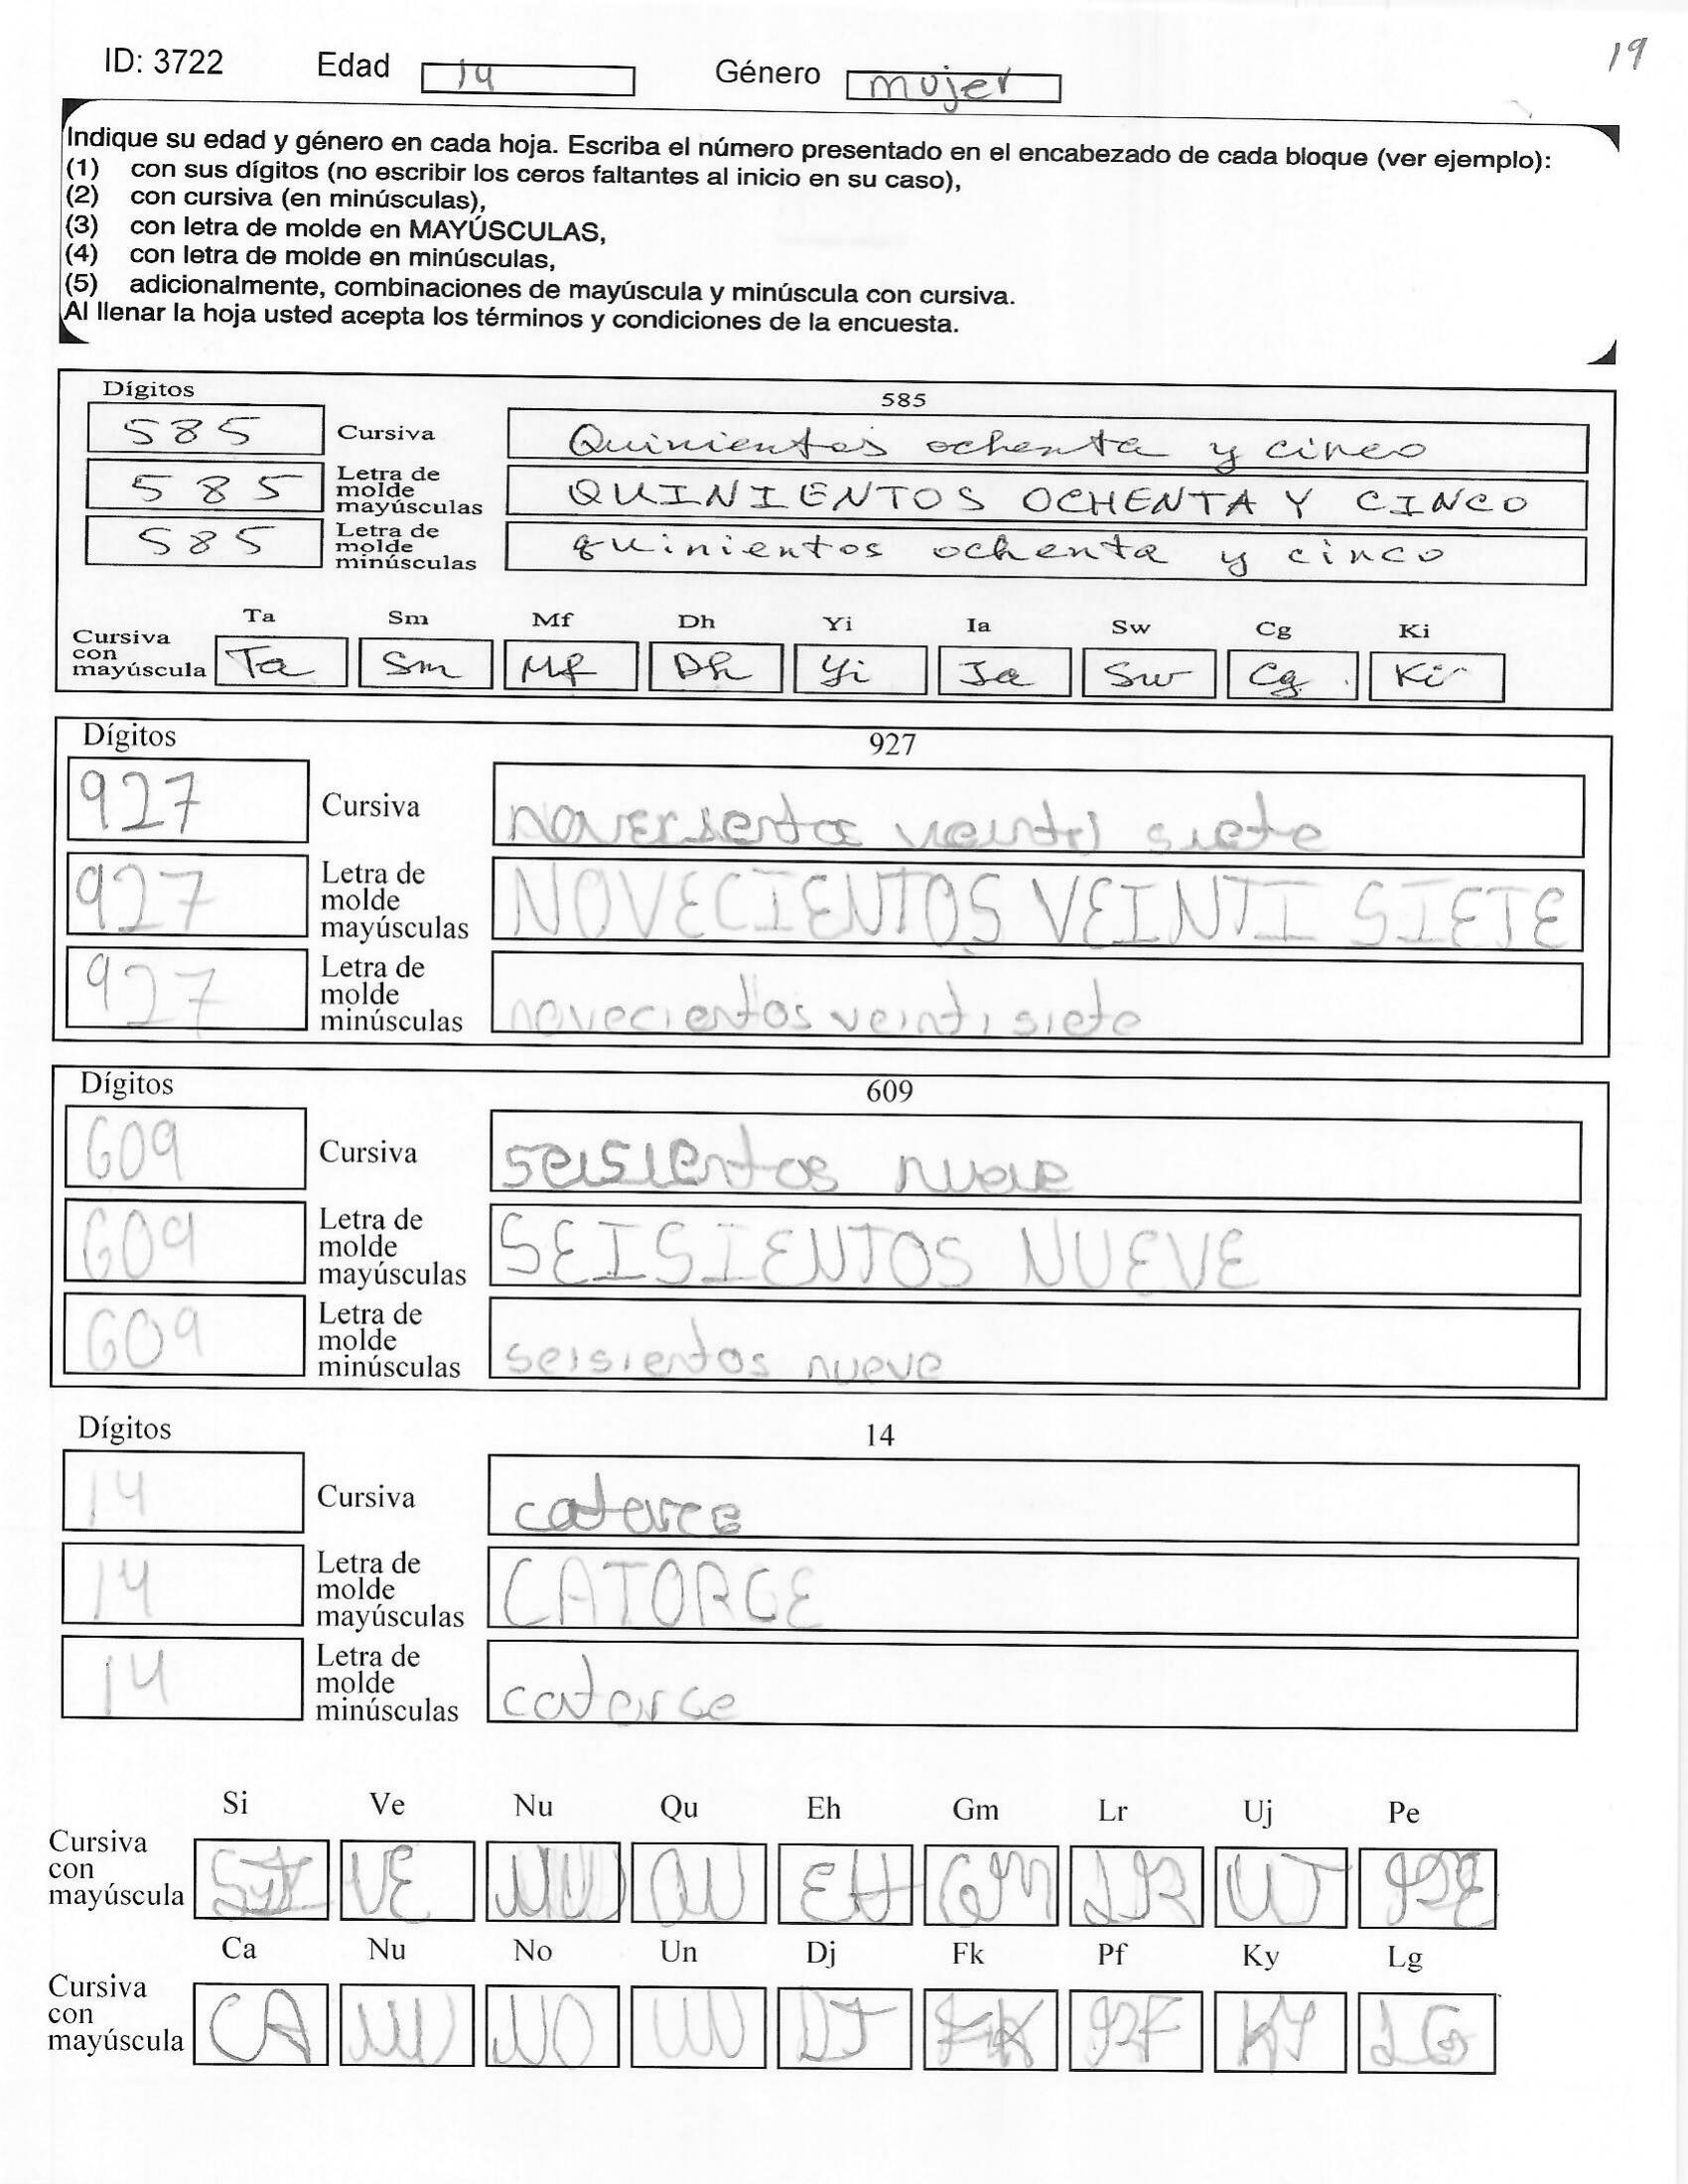 19
ID: 3722 Edad 14 Género mujer
Indique su edad y género en cada hoja. Escriba el número presentado en el encabezado de cada bloque (ver ejemplo):
(1) con sus dígitos (no escribir los ceros faltantes al inicio en su caso),
(2) con cursiva (en minúsculas),
(3) con letra de molde en MAYÚSCULAS,
(4) con letra de molde en minúsculas,
(5) adicionalmente, combinaciones de mayúscula y minúscula con cursiva.
Al llenar la hoja usted acepta los términos y condiciones de la encuesta.
Dígitos 585
585 Cursiva Quinientos ochenta y cinco
585 Letra de molde mayúsculas QUINIENTOS OCHENTA Y CINCO
585 Letra de molde minúsculas quinientos ochenta y cinco
Ta Sm Mf Dh Yi Ia Sw Cg Ki
Cursiva con mayúscula Ta Sm Mf Dh Yi Ia Sw Cg Ki
Dígitos 927
927 Cursiva siete
927 Letra de molde mayúsculas NOVECIENTOS VEINTI SIETE
927 Letra de molde minúsculas novecientos veinti siete
Dígitos 609
609 Cursiva seisientos nueve
609 Letra de molde mayúsculas SEISIENTOS NUEVE
609 Letra de molde minúsculas seisientos nueve
Dígitos 14
14 Cursiva catorce
14 Letra de molde mayúsculas CATORCE
14 Letra de molde minúsculas catorce
Si Ve Nu Qu Eh Gm Lr Uj Pe
Cursiva con mayúscula VE NU QU EH GM LR UJ PE
Ca Nu No Un Dj Fk Pf Ky Lg
Cursiva con mayúscula CA NU NO UN DJ FK PF KY LG